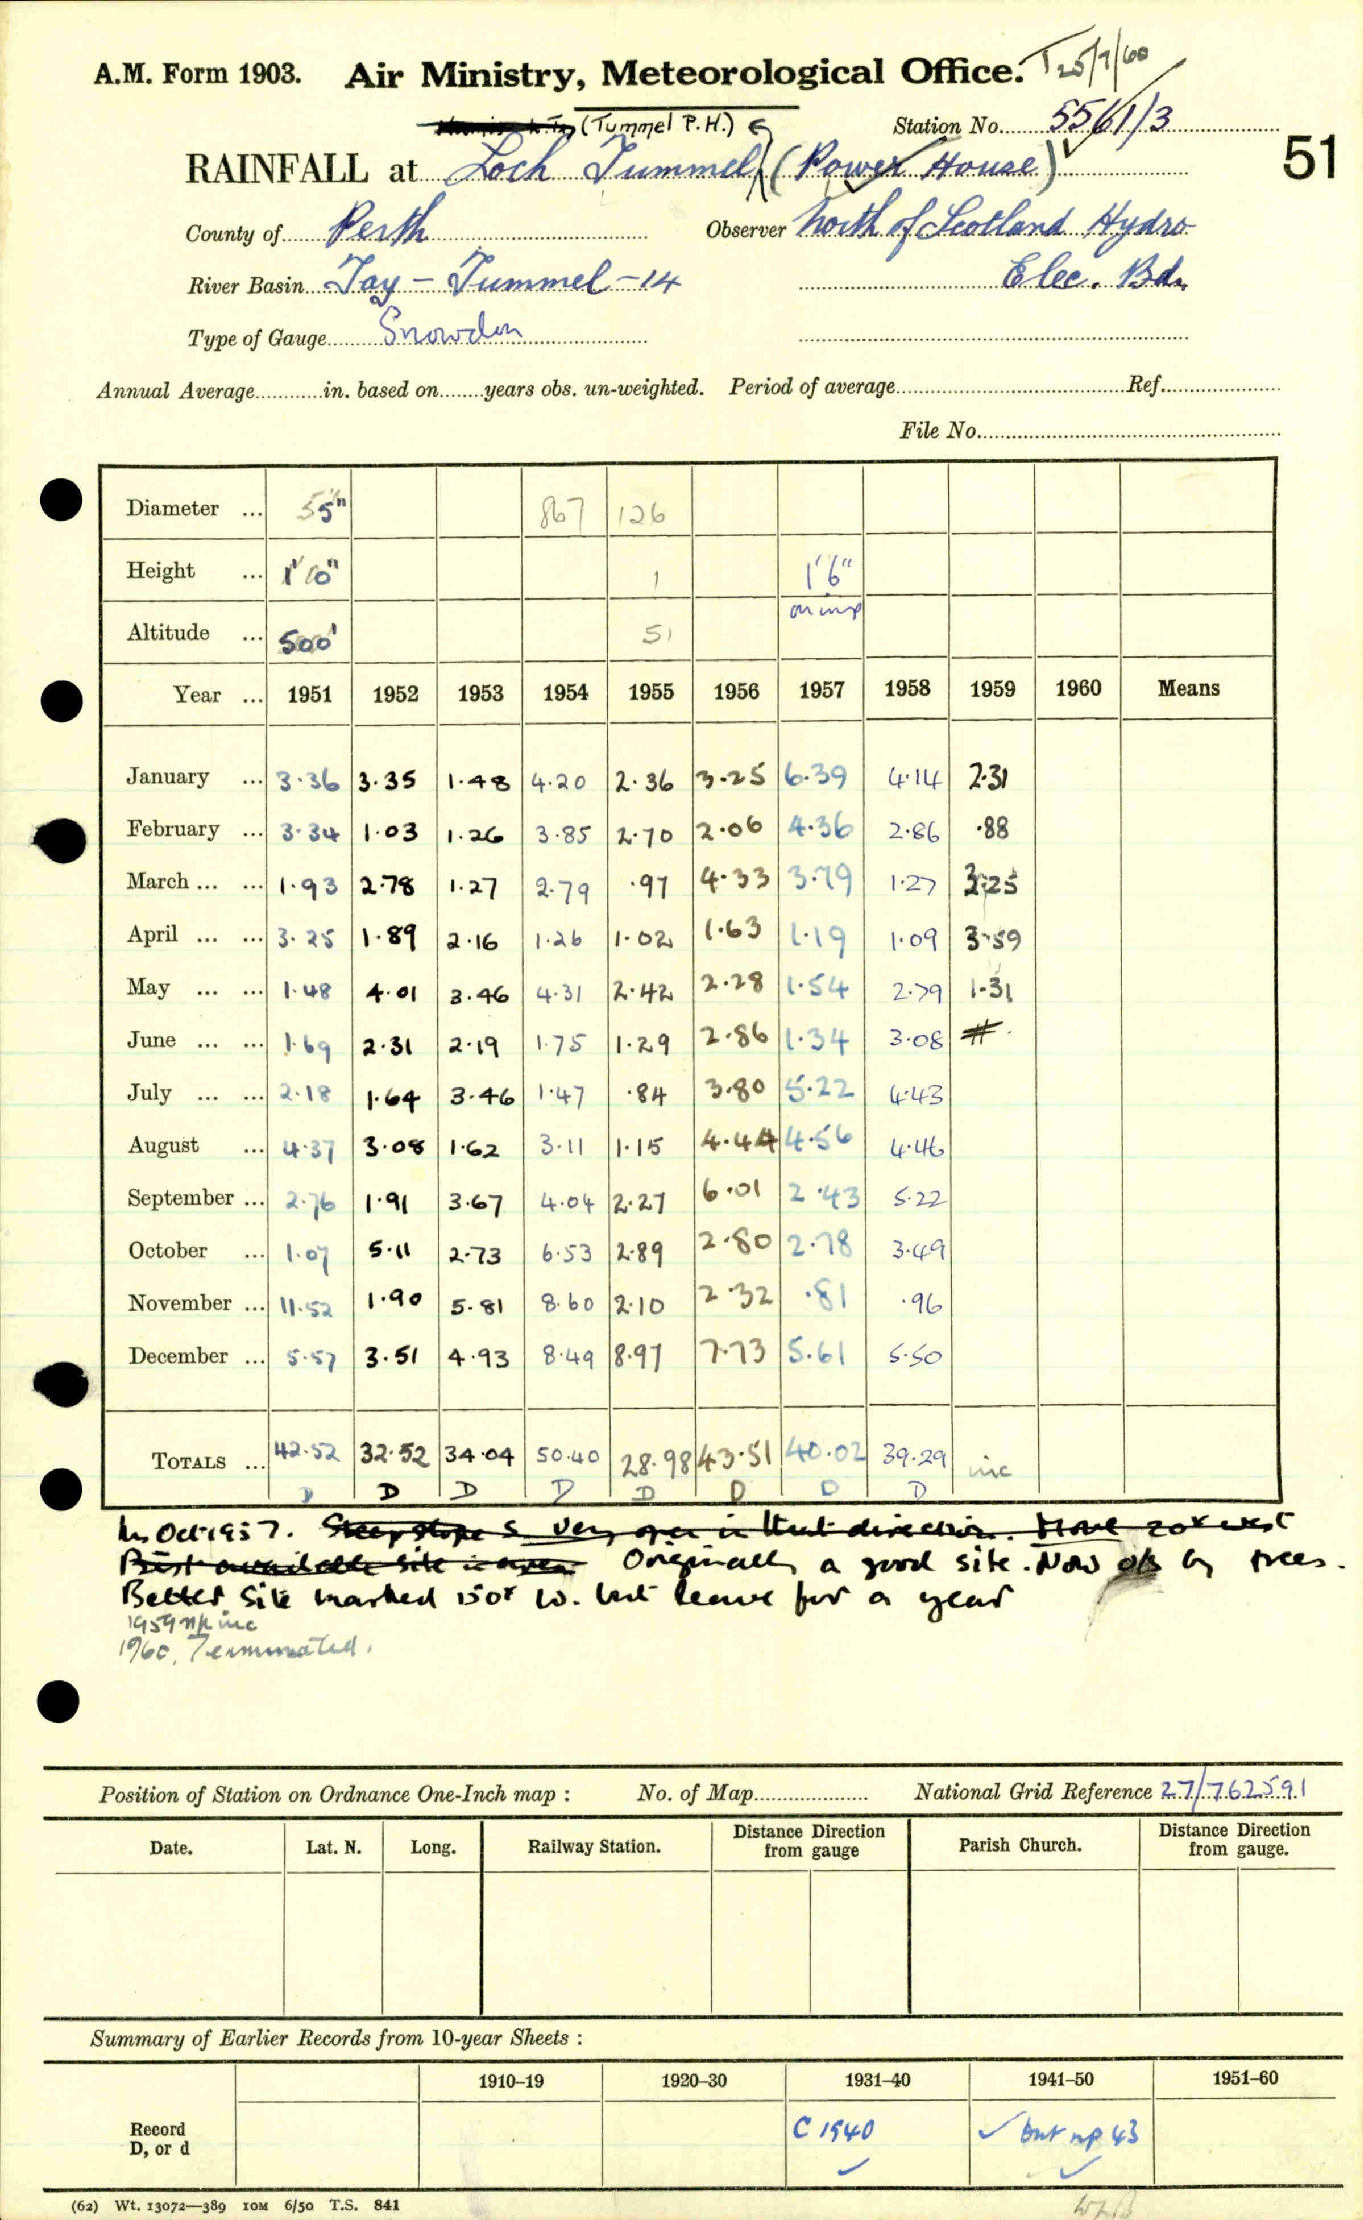 A.M. Form 1903. Air Ministry, Meteorological Office. T 25/7/60
(Tummel P.H.) Station No. 5561/3
RAINFALL at Loch Tummel (Power House) 51
County of Perth Observer North of Scotland Hydro
River Basin Tay - Tummel - 14 Elec. Bd.
Type of Gauge Snowdon
Annual Average in. based on years obs. un-weighted. Period of average Ref.
File No.
Diameter ... 5" 867 126
Height ... 1'10" 1 1'6"
Altitude ... 500' 51
Year ... 1951 1952 1953 1954 1955 1956 1957 1958 1959 1960 Means
January ... 3.36 3.35 1.48 4.20 2.36 3.25 6.39 4.14 2.31
February ... 3.34 1.03 1.26 3.85 2.70 2.06 4.36 2.86 .88
March ... ... 1.93 2.78 1.27 2.79 .97 4.33 3.79 1.27 3.25
April ... ... 3.25 1.89 2.16 1.26 1.02 1.63 1.19 1.09 3.59
May ... ... 1.48 4.01 3.46 4.31 2.42 2.28 1.54 2.79 1.31
June ... ... 1.69 2.31 2.19 1.75 1.29 2.86 1.34 3.08 #
July ... ... 2.18 1.64 3.46 1.47 .84 3.80 5.22 4.43
August ... 4.37 3.08 1.62 3.11 1.15 4.44 4.56 4.46
September ... 2.76 1.91 3.67 4.04 2.27 6.01 2.43 5.22
October ... 1.07 5.11 2.73 6.53 2.89 2.80 2.78 3.49
November ... 11.52 1.90 5.81 8.60 2.10 2.32 .81 .96
December ... 5.57 3.51 4.93 8.49 8.97 7.73 5.61 5.50
TOTALS ... 42.52 32.52 34.04 50.40 28.98 43.51 40.02 39.29 inc
D D D D D D D D
In Oct 1957. Steep slope S very open in that direction. Move 20x west
Best available site in area Originally a good site. Now o/s by trees.
Better site marked 150x W. but leave for a year
1959 np inc
1960. Terminated.
Position of Station on Ordnance One-Inch map : No. of Map National Grid Reference 27/762591
Date. Lat. N. Long. Railway Station. Distance from gauge Direction Parish Church. Distance from gauge. Direction
Summary of Earlier Records from 10-year Sheets :
1910–19 1920–30 1931–40 1941–50 1951–60
Record D, or d C 1940 ✓ but np 43
✓ ✓
(62) Wt. 13072—389 10M 6/50 T.S. 841